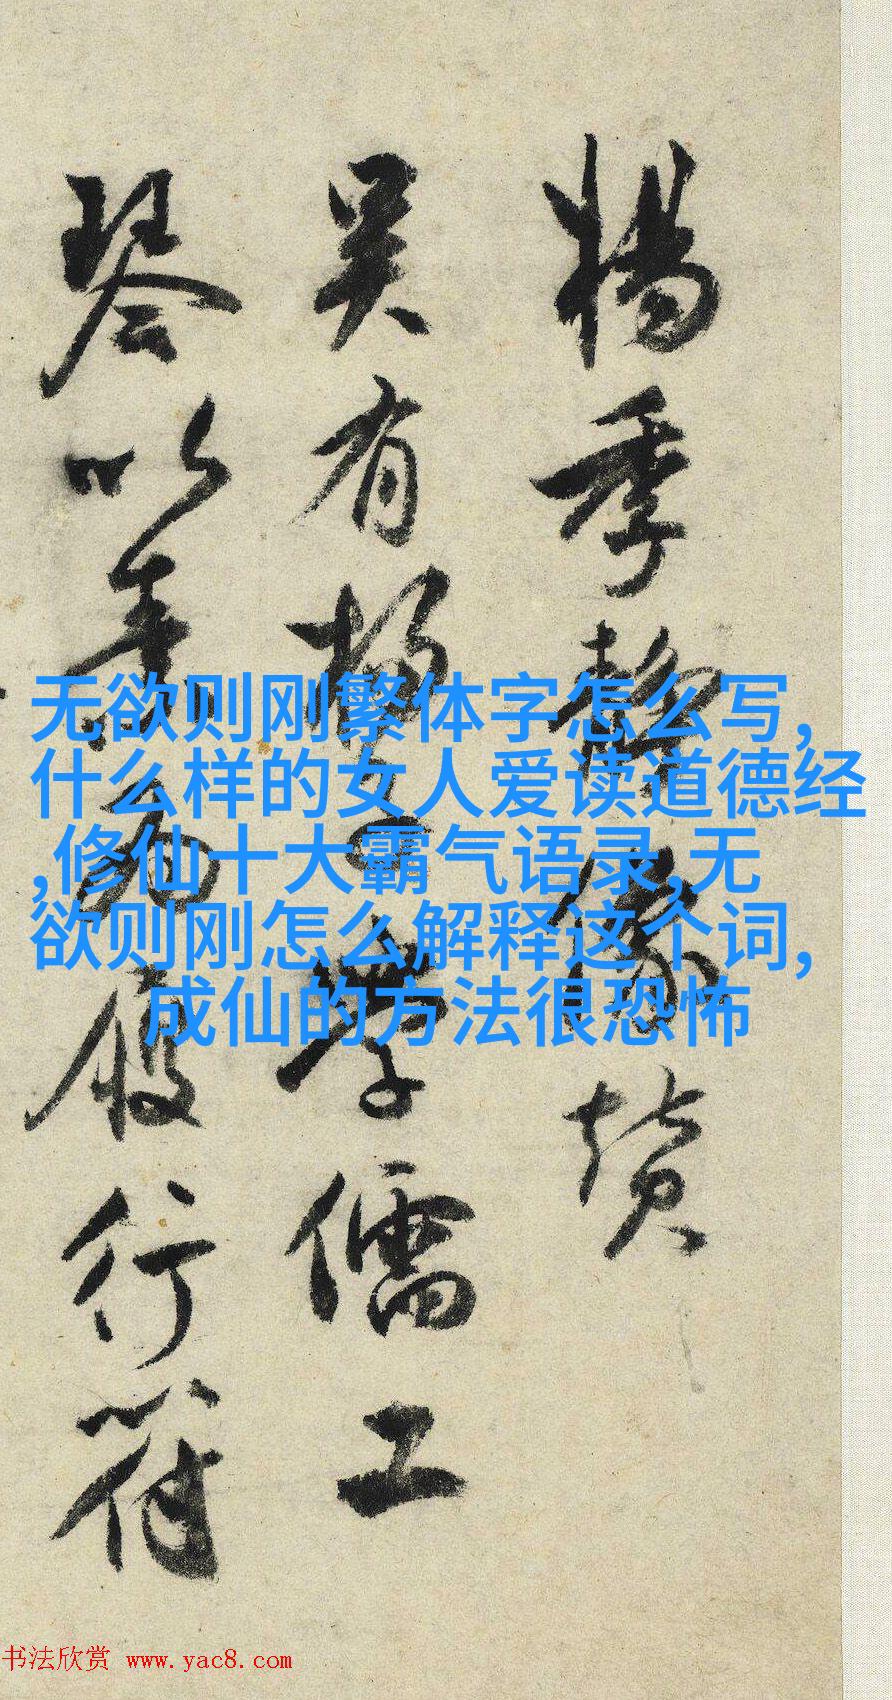 楊季靜像贊
吴有楊學儒工
琴以為履行符
无欲则刚繁体字怎么写,
什么样的女人爱读道德经
,修仙十大霸气语录,无
欲则刚怎么解释这个词,
成仙的方法很恐怖
书法欣赏 www.yac8.com